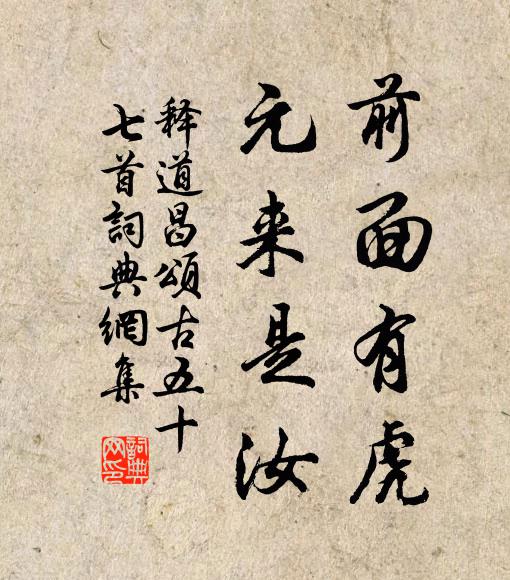 前面有虎
元来是汝
释道昌頌古五十
七首詞典網集
詞典
网印